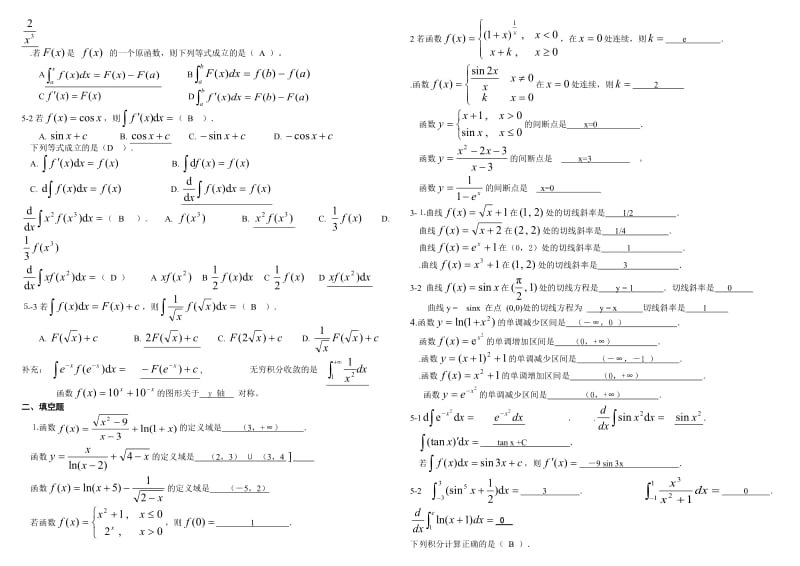 2/x³
.若 F(x) 是 f(x) 的一个原函数，则下列等式成立的是（ A ）．
A ∫ₐˣ f(x)dx = F(x) − F(a) B ∫ₐᵇ F(x)dx = f(b) − f(a)
C f′(x) = F(x) D ∫ₐᵇ f(x)dx = F(b) − F(a)
5-2 若 f(x) = cos x，则 ∫ f′(x)dx =（ B ）．
A. sin x + c B. cos x + c C. −sin x + c D. −cos x + c
下列等式成立的是（D ）．
A. ∫ f′(x)dx = f(x) B. ∫ df(x) = f(x)
C. d∫ f(x)dx = f(x) D. d/dx ∫ f(x)dx = f(x)
d/dx ∫ x² f(x³)dx =（ B ）． A. f(x³) B. x² f(x³) C. 1/3 f(x) D.
1/3 f(x³)
d/dx ∫ xf(x²)dx =（ D ） A xf(x²) B 1/2 f(x)dx C 1/2 f(x) D xf(x²)dx
5.-3 若 ∫ f(x)dx = F(x) + c，则 ∫ 1/√x f(√x)dx =（ B ）．
A. F(√x) + c B. 2F(√x) + c C. F(2√x) + c D. 1/√x F(√x) + c
补充： ∫ e⁻ˣ f(e⁻ˣ)dx = −F(e⁻ˣ) + c， 无穷积分收敛的是 ∫₁⁺∞ 1/x² dx
函数 f(x) = 10ˣ + 10⁻ˣ 的图形关于 y 轴 对称。
二、填空题
⒈函数 f(x) = √(x² − 9)/(x − 3) + ln(1 + x) 的定义域是 （3，+∞） ．
函数 y = x/ln(x − 2) + √(4 − x) 的定义域是 （2，3） ∪ （3，4 ]
函数 f(x) = ln(x + 5) − 1/√(2 − x) 的定义域是 （－5，2）
若函数 f(x) = { x² + 1, x ≤ 0 ; 2ˣ, x > 0 ，则 f(0) = 1 ．
2 若函数 f(x) = { (1 + x)^(1/x), x < 0 ; x + k, x ≥ 0 ，在 x = 0 处连续，则 k = e ．
.函数 f(x) = { sin 2x/x x ≠ 0 ; k x = 0 在 x = 0 处连续，则 k = 2
函数 y = { x + 1, x > 0 ; sin x, x ≤ 0 的间断点是 x=0 ．
函数 y = (x² − 2x − 3)/(x − 3) 的间断点是 x=3 ，
函数 y = 1/(1 − eˣ) 的间断点是 x=0
3-⒈曲线 f(x) = √x + 1 在 (1, 2) 处的切线斜率是 1/2 ．
曲线 f(x) = √(x + 2) 在 (2, 2) 处的切线斜率是 1/4 ．
曲线 f(x) = eˣ + 1 在（0，2）处的切线斜率是 1 ．
.曲线 f(x) = x³ + 1 在 (1, 2) 处的切线斜率是 3 ．
3-2 曲线 f(x) = sin x 在 (π/2, 1) 处的切线方程是 y＝1 ．切线斜率是 0
曲线 y＝ sinx 在点 (0,0)处的切线方程为 y＝x 切线斜率是 1
4.函数 y = ln(1 + x²) 的单调减少区间是 （－∞，0 ） ．
函数 f(x) = eˣ² 的单调增加区间是 （0，+∞） ．
.函数 y = (x + 1)² + 1 的单调减少区间是 （－∞，－1 ） ．
.函数 f(x) = x² + 1 的单调增加区间是 （0，+∞） ．
函数 y = e^(−x²) 的单调减少区间是 （0，+∞） ．
5-1 d∫ e^(−x²)dx = e^(−x²)dx ． . d/dx ∫ sin x²dx = sin x² ．
∫ (tan x)′dx = tan x +C ．
若 ∫ f(x)dx = sin 3x + c，则 f′(x) = －9 sin 3x ．
5-2 ∫₋₃³ (sin⁵ x + 1/2)dx = 3 ． ∫₋₁¹ x³/(x² + 1) dx = 0 ．
d/dx ∫₁ᵉ ln(x + 1)dx = 0
下列积分计算正确的是（ B ）．